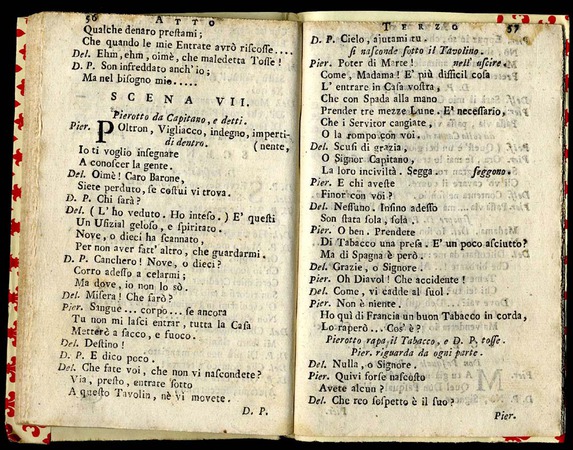 56 ATTO
Qualche denaro prestami;
Che quando le mie Entrate avrò riscosse....
Del. Ehm, ehm, oimè, che maledetta Tosse!
D. P. Son infreddato anch'io;
Ma nel bisogno mio.....
SCENA VII.
Pierotto da Capitano, e detti.
Pier. POltron, Vigliacco, indegno, imperti-
di dentro. (nente,
Io ti voglio insegnare
A conoscer la gente.
Del. Oimè! Caro Barone,
Siete perduto, se costui vi trova.
D. P. Chi sarà?
Del. (L'ho veduto. Ho inteso.) E' questi
Un Ufizial geloso, e spiritato.
Nove, o dieci ha scannato,
Per non aver fatt'altro, che guardarmi.
D. P. Canchero! Nove, o dieci?
Corro adesso a celarmi;
Ma dove, io non lo sò.
Del. Misera! Che farò?
Pier. Sangue... corpo... se ancora
Tu non mi lasci entrar, tutta la Casa
Metterò a sacco, e fuoco.
Del. Destino!
D. P. E dico poco.
Del. Che fate voi, che non vi nascondete?
Via, presto, entrate sotto
A questo Tavolin, nè vi movete.
D. P.
TERZO 57
D. P. Cielo, ajutami tu.
si nasconde sotto il Tavolino.
Pier. Poter di Marte! nell'uscire.
Come, Madama! E' più difficil cosa
L' entrare in Casa vostra,
Che con Spada alla mano
Prender tre mezze Lune. E' necessario,
Che i Servitor cangiate,
O la rompo con voi.
Del. Scusi di grazia,
O Signor Capitano,
La loro inciviltà. Segga. seggono.
Pier. E chi aveste
Finor con voi?
Del. Nessuno. Insino adesso
Son stata sola, sola.
Pier. O ben. Prendete
Di Tabacco una presa. E' un poco asciutto?
Ma di Spagna è però.
Del. Grazie, o Signore.
Pier. Oh Diavol! Che accidente!
Del. Come, vi cadde al suol.
Pier. Non è niente.
Ho quì di Francia un buon Tabacco in corda,
Lo raperò... Cos' è?
Pierotto rapa il Tabacco, e D. P. tosse.
Pier. riguarda da ogni parte.
Del. Nulla, o Signore.
Pier. Quivi forse nascosto
Avete alcun?
Del. Che reo sospetto è il suo?
Pier.